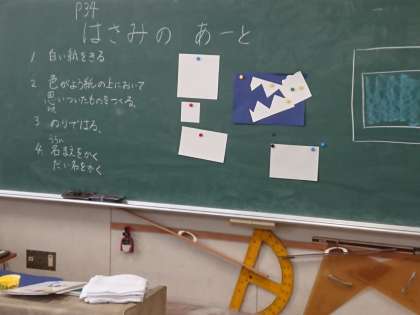 P34
はさみの あーと
1 白い紙をきる
2 色がよう紙の上において
思いついたものをつくる。
3 のりではる。
うらに
4. 名まえをかく
だい名をかく